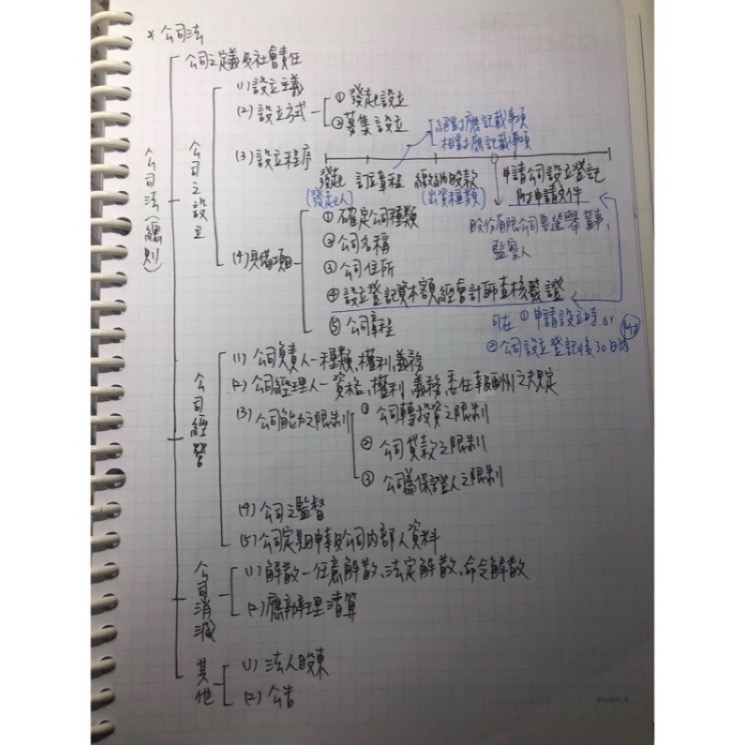 * 公司法
公司之定義及社會責任
公司法(總則)
公司之設立
(1) 設立主義
(2) 設立方式
① 發起設立
② 募集設立
絕對應記載事項
相對應記載事項
(3) 設立程序
發起 訂立章程 繳納股款 申請公司設立登記
(發起人) (出資種類) 附申請文件
股份有限公司要選舉董事、
監察人
(4) 具備項目
① 確定公司種類
② 公司名稱
③ 公司住所
④ 設立登記資本額,經會計師查核簽證
⑤ 公司章程
可在 ① 申請設立時 or
② 公司設立登記後30日內
公司經營
(1) 公司負責人-種類、權利、義務
(2) 公司經理人-資格、權利、義務、委任報酬之規定
(3) 公司能力之限制
① 公司轉投資之限制
② 公司貸款之限制
③ 公司為保證人之限制
(4) 公司之監督
(5) 公司定期申報公司內部人資料
公司消滅
(1) 解散-任意解散、法定解散、命令解散
(2) 應辦理清算
其他
(1) 法人股東
(2) 公告